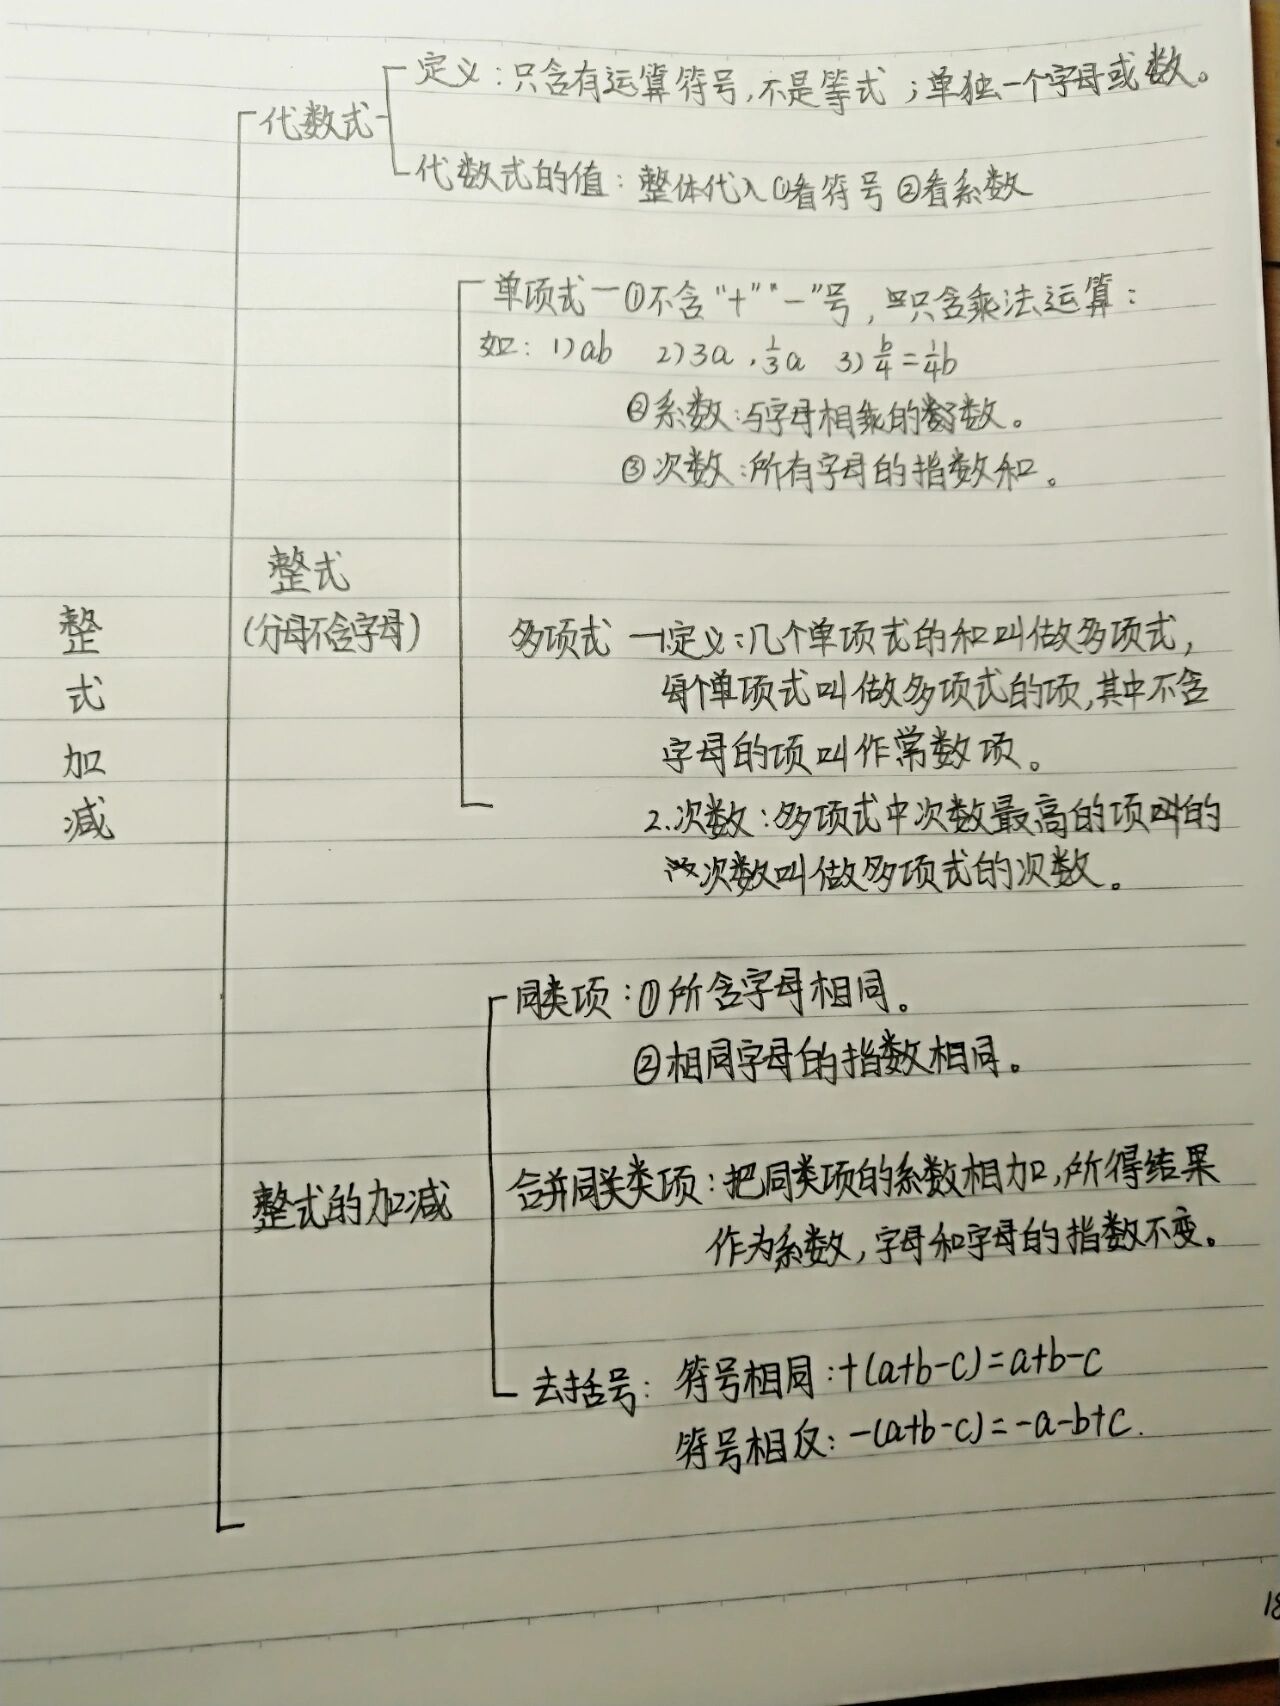 定义：只含有运算符号，不是等式；单独一个字母或数。
代数式
代数式的值：整体代入①看符号②看系数
单项式一①不含“+”“-”号，只含乘法运算：
如：1)ab 2)3a，1/3a 3)b/4=1/4b
②系数：与字母相乘的数。
③次数：所有字母的指数和。
整式
(分母不含字母)
整式加减
多项式 一1.定义：几个单项式的和叫做多项式，
每个单项式叫做多项式的项，其中不含
字母的项叫作常数项。
2.次数：多项式中次数最高的项的
次数叫做多项式的次数。
同类项：①所含字母相同。
②相同字母的指数相同。
合并同类项：把同类项的系数相加，所得结果
作为系数，字母和字母的指数不变。
整式的加减
去括号：符号相同：+(a+b-c)=a+b-c
符号相反：-(a+b-c)=-a-b+c.
18